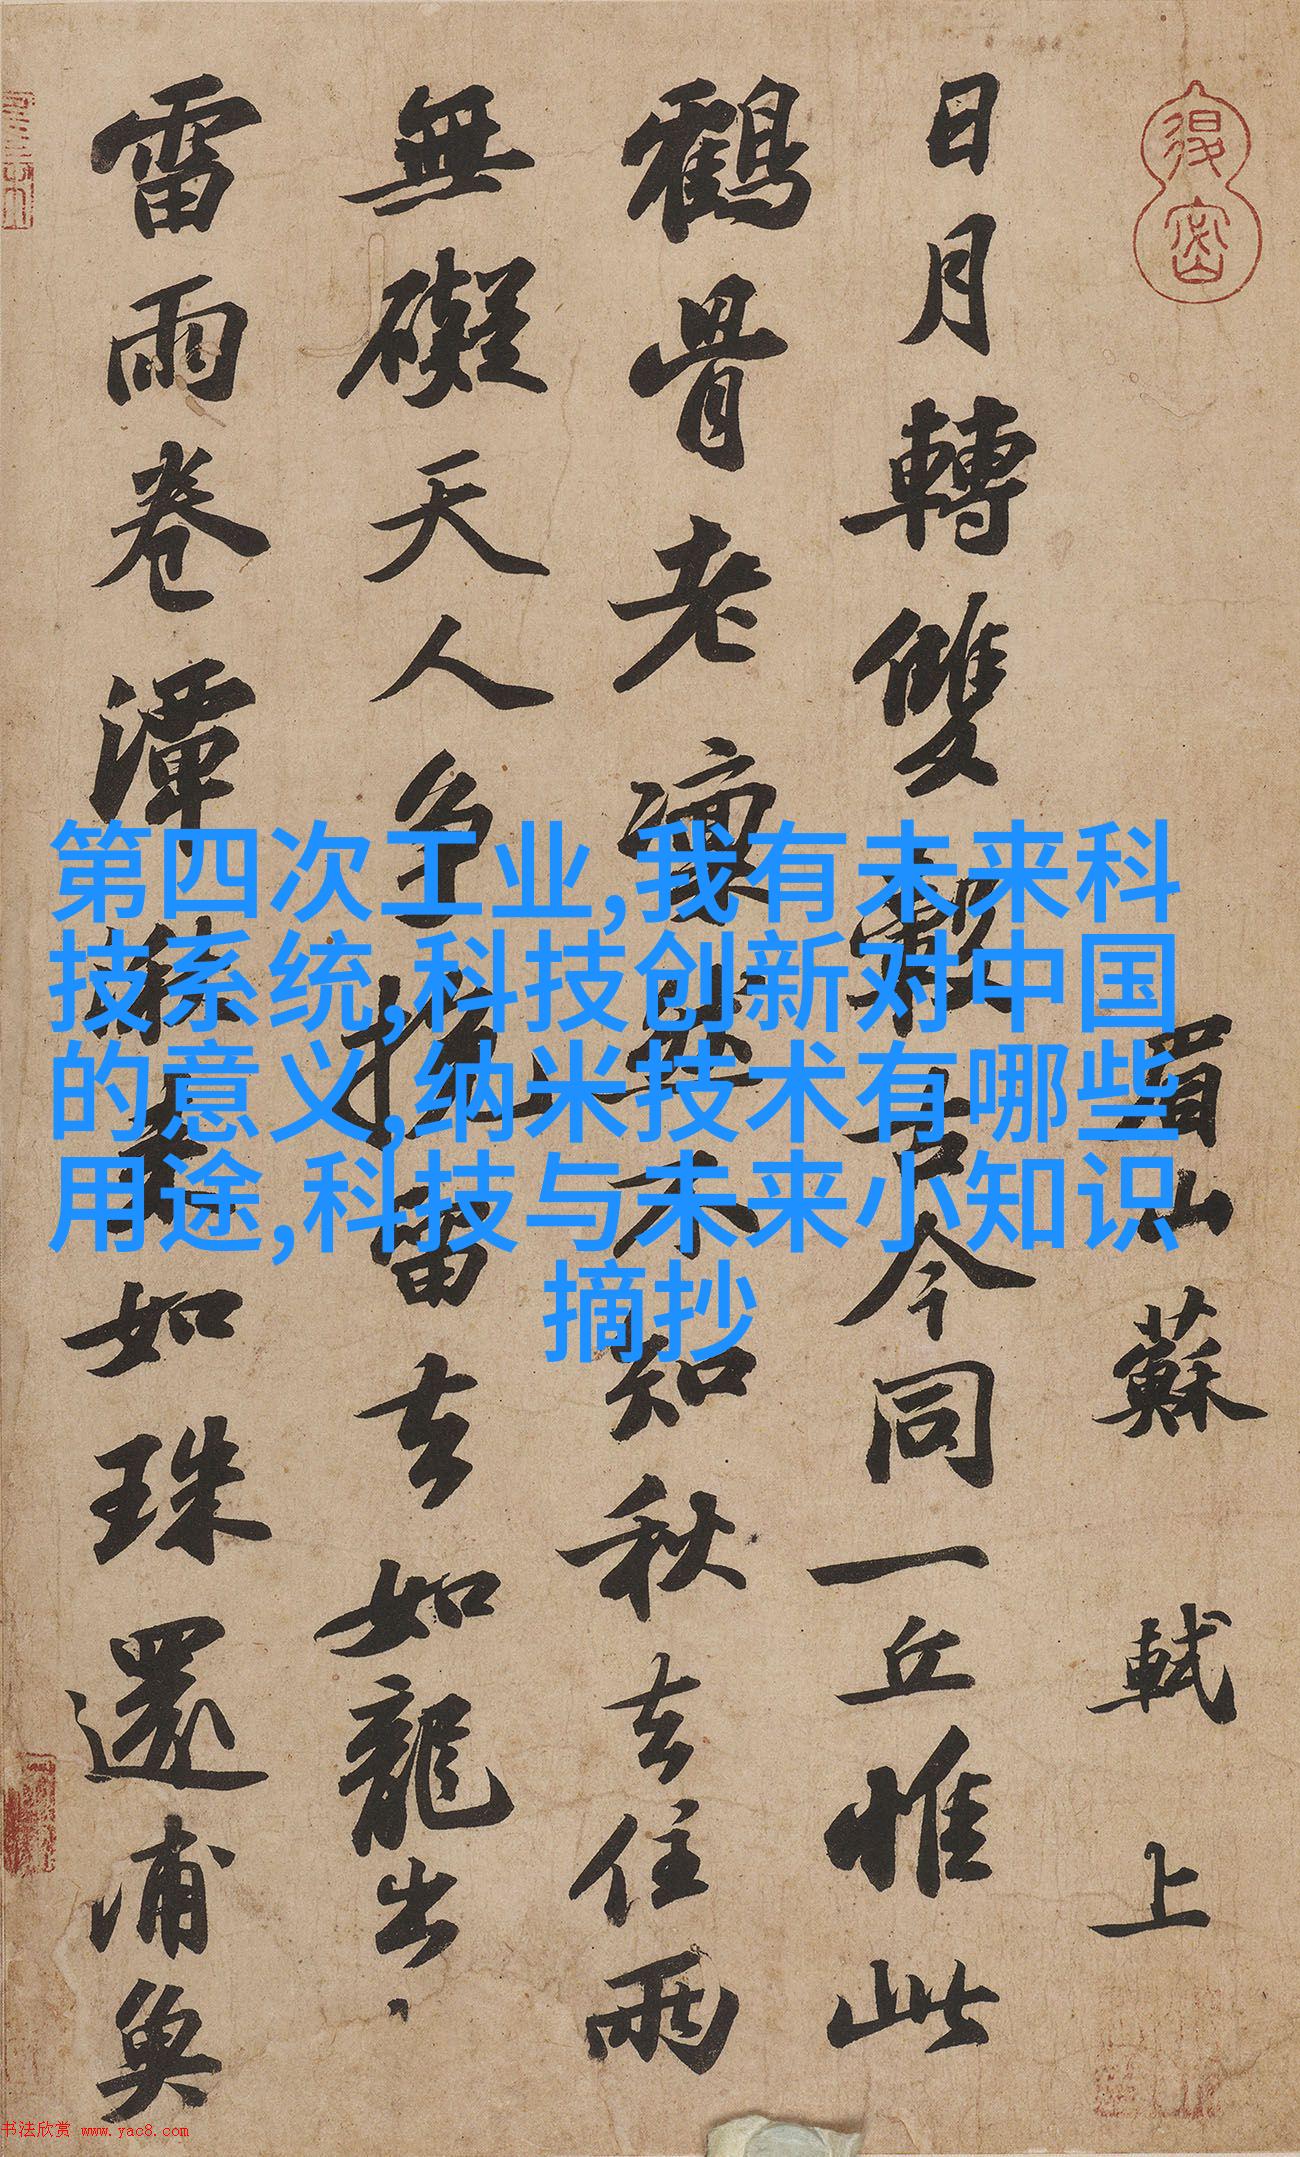 眉山蘇軾上
日月轉雙轂古今同一丘惟此
鶴骨老凜然不知秋去住兩
無礙天人争挽留去如龍出
雷雨卷潭湫来如珠還浦魚
第四次工业,我有未来科
技系统,科技创新对中国
的意义,纳米技术有哪些
用途,科技与未来小知识
摘抄
书法欣赏 www.yac8.com